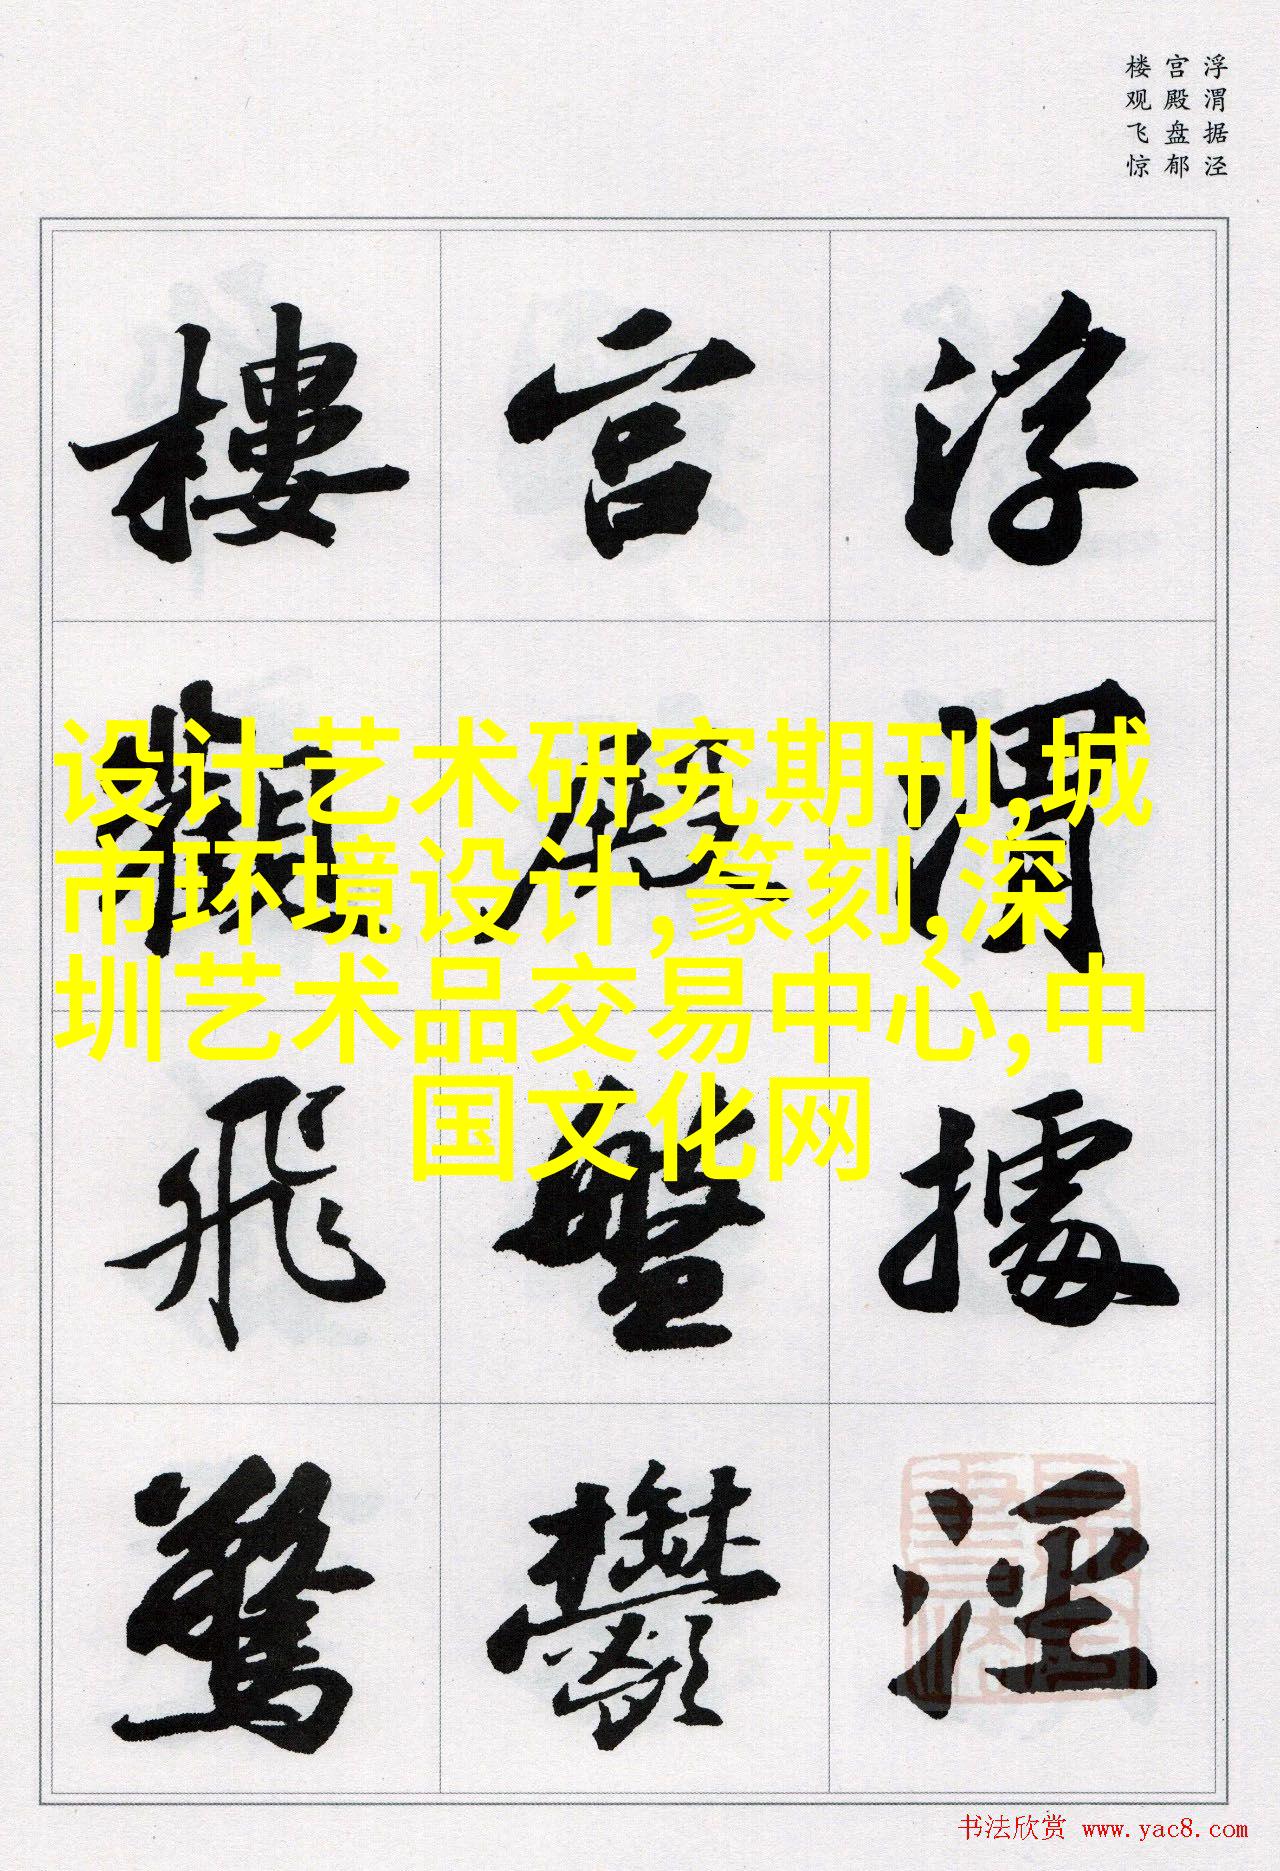 浮渭据泾
宫殿盘郁
楼观飞惊
浮渭據涇
宫殿盤鬱
樓觀飛驚
设计艺术研究期刊,城
市环境设计,篆刻,深
圳艺术品交易中心,中
国文化网
书法欣赏 www.yac8.com